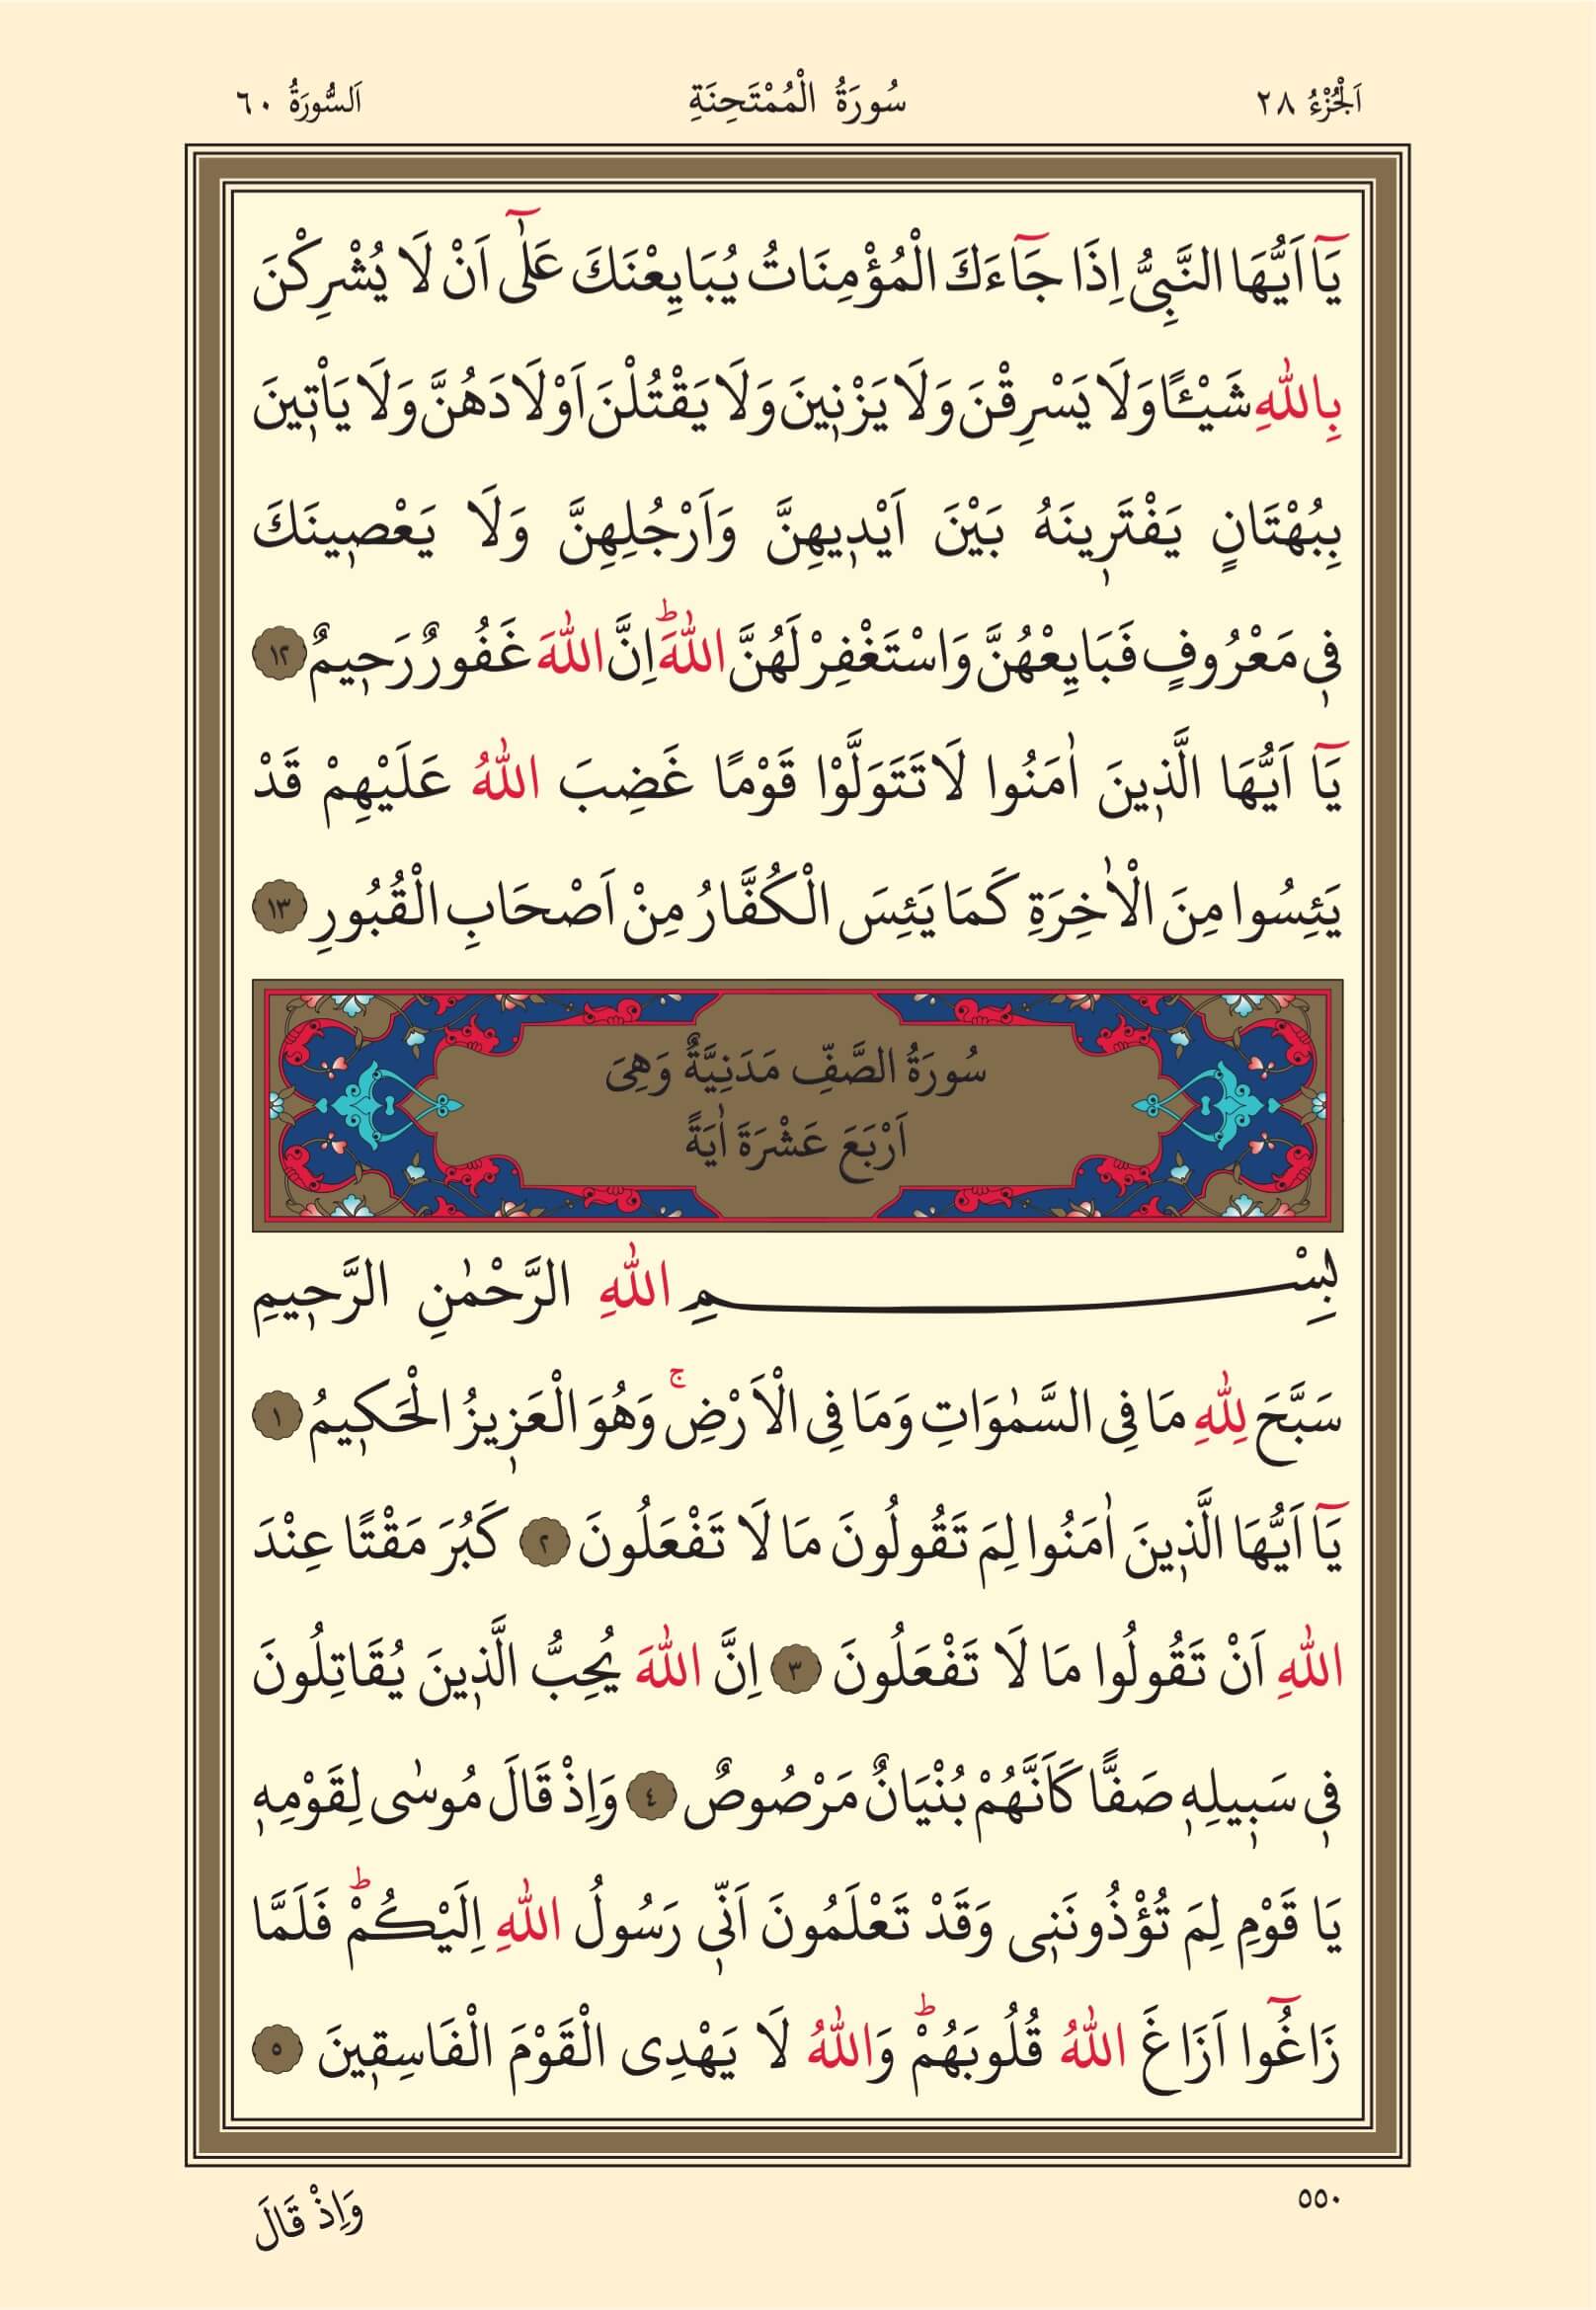 اَلْجُزْءُ ٢٨
سُورَةُ الْمُمْتَحِنَةِ
اَلسُّورَةُ ٦٠
يَٓا اَيُّهَا النَّبِىُّ اِذَا جَٓاءَكَ الْمُؤْمِنَاتُ يُبَايِعْنَكَ عَلٰٓى اَنْ لَا يُشْرِكْنَ
بِاللّٰهِ شَيْـًٔا وَلَا يَسْرِقْنَ وَلَا يَزْن۪ينَ وَلَا يَقْتُلْنَ اَوْلَادَهُنَّ وَلَا يَاْت۪ينَ
بِبُهْتَانٍ يَفْتَر۪ينَهُ بَيْنَ اَيْد۪يهِنَّ وَاَرْجُلِهِنَّ وَلَا يَعْص۪ينَكَ
ف۪ى مَعْرُوفٍ فَبَايِعْهُنَّ وَاسْتَغْفِرْ لَهُنَّ اللّٰهَۜ اِنَّ اللّٰهَ غَفُورٌ رَح۪يمٌ ١٢
يَٓا اَيُّهَا الَّذ۪ينَ اٰمَنُوا لَا تَتَوَلَّوْا قَوْمًا غَضِبَ اللّٰهُ عَلَيْهِمْ قَدْ
يَئِسُوا مِنَ الْاٰخِرَةِ كَمَا يَئِسَ الْكُفَّارُ مِنْ اَصْحَابِ الْقُبُورِ ١٣
سُورَةُ الصَّفِّ مَدَنِيَّةٌ وَهِىَ
اَرْبَعَ عَشْرَةَ اٰيَةً
بِسْمِ اللّٰهِ الرَّحْمٰنِ الرَّح۪يمِ
سَبَّحَ لِلّٰهِ مَا فِى السَّمٰوَاتِ وَمَا فِى الْاَرْضِۚ وَهُوَ الْعَز۪يزُ الْحَك۪يمُ ١
يَٓا اَيُّهَا الَّذ۪ينَ اٰمَنُوا لِمَ تَقُولُونَ مَا لَا تَفْعَلُونَ ٢ كَبُرَ مَقْتًا عِنْدَ
اللّٰهِ اَنْ تَقُولُوا مَا لَا تَفْعَلُونَ ٣ اِنَّ اللّٰهَ يُحِبُّ الَّذ۪ينَ يُقَاتِلُونَ
ف۪ى سَب۪يلِه۪ صَفًّا كَاَنَّهُمْ بُنْيَانٌ مَرْصُوصٌ ٤ وَاِذْ قَالَ مُوسٰى لِقَوْمِه۪
يَا قَوْمِ لِمَ تُؤْذُونَن۪ى وَقَدْ تَعْلَمُونَ اَنّ۪ى رَسُولُ اللّٰهِ اِلَيْكُمْۜ فَلَمَّا
زَاغُٓوا اَزَاغَ اللّٰهُ قُلُوبَهُمْۜ وَاللّٰهُ لَا يَهْدِى الْقَوْمَ الْفَاسِق۪ينَ ٥
٥٥٠
وَاِذْ قَالَ